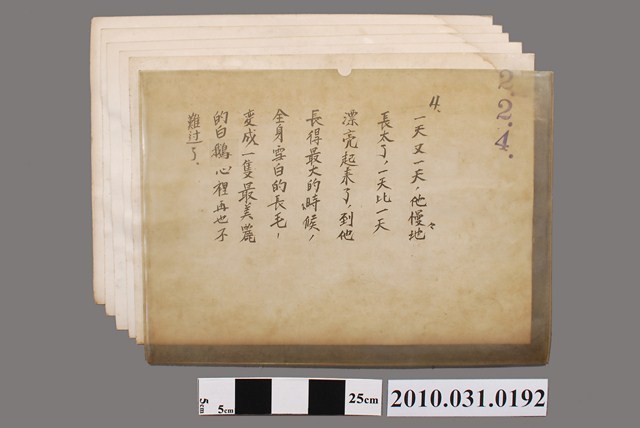 2.
2.
4.
4.
一天又一天,他慢々地
長大了,一天比一天
漂亮起來了,到他
長得最大的時候,
全身雪白的長毛,
變成一隻最美麗
的白鵝心裡再也不
難过了.
5cm
5cm
25cm
2010.031.0192